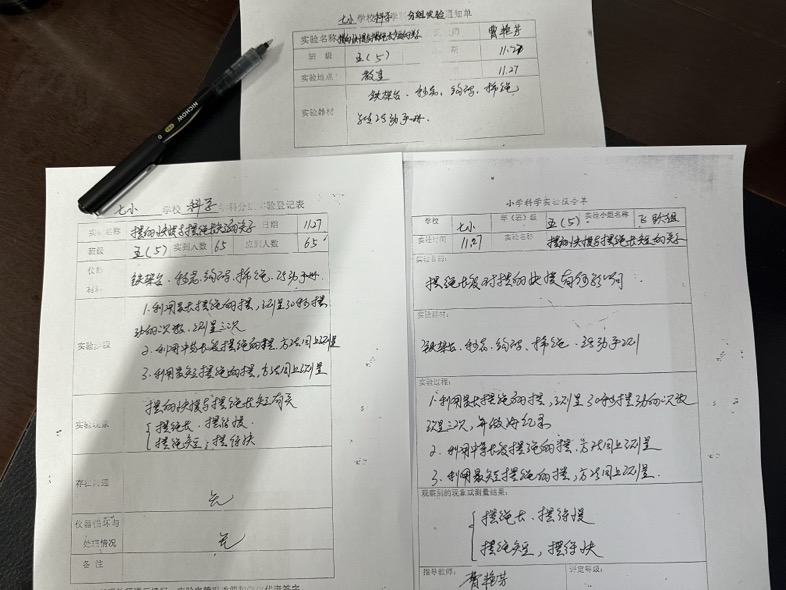 七小 学校 科学 学科 分组实验 通知单
实验名称 摆的快慢与摆绳长短的关系 曹艳芳
班级 五(5) 期 11.27
实验地点 教室 11.27
实验器材 铁架台、秒表、钩码、棉绳、
活动手册.
七小 学校 科学 学科分组实验登记表
实验名称 摆的快慢与摆绳长短的关系 日期 11.27
班级 五(5) 实到人数 65 应到人数 65
仪器 铁架台、秒表、钩码、棉绳、活动手册.
材料
实验步骤 1.利用最长摆绳的摆,测量30秒摆
动的次数,测量三次
2.利用中等长度摆绳的摆,方法同上测量
3.利用最短摆绳的摆,方法同上测量
实验现象 摆的快慢与摆绳长短有关
摆绳长,摆得慢
摆绳短,摆得快
存在问题
无
仪器损坏与
处理情况 无
备注
小学科学实验报告单
学校 七小 年(班)级 五(5) 实验小组名称 飞跃组
实验时间 11.27 实验名称 摆的快慢与摆绳长短的关系
实验目的:
摆绳长度对摆的快慢有何影响
实验器材:
铁架台、秒表、钩码、棉绳、活动手册
实验过程:
1.利用最长摆绳的摆,测量30秒摆动的次数
测量三次,并做好记录
2.利用中等长度摆绳的摆,方法同上测量
3.利用最短摆绳的摆,方法同上测量.
观察到的现象或测量结果:
摆绳长,摆得慢
摆绳短,摆得快
指导教师: 曹艳芳 评定等级: